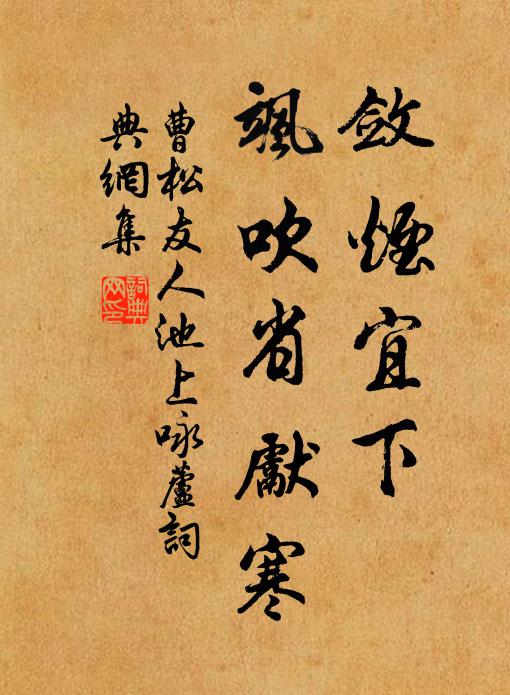 斂煙宜下
颯吹省獻寒
曹松友人池上咏蘆詞
典網集
詞典
网印